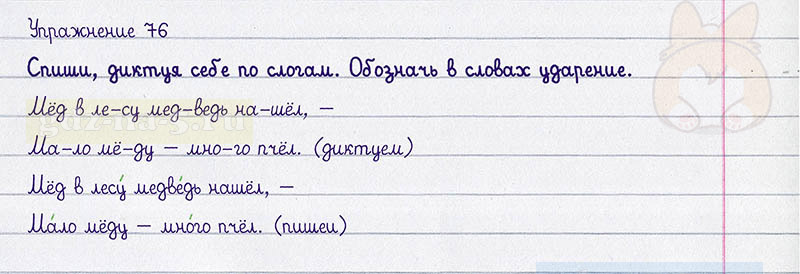 Упражнение 76
Спиши, диктуя себе по слогам. Обозначь в словах ударение.
Мёд в ле-су мед-ведь на-шёл, —
Ма-ло мё-ду — мно-го пчёл. (диктуем)
Мёд в лесу́ медве́дь нашёл, —
Ма́ло мёду — мно́го пчёл. (пишем)